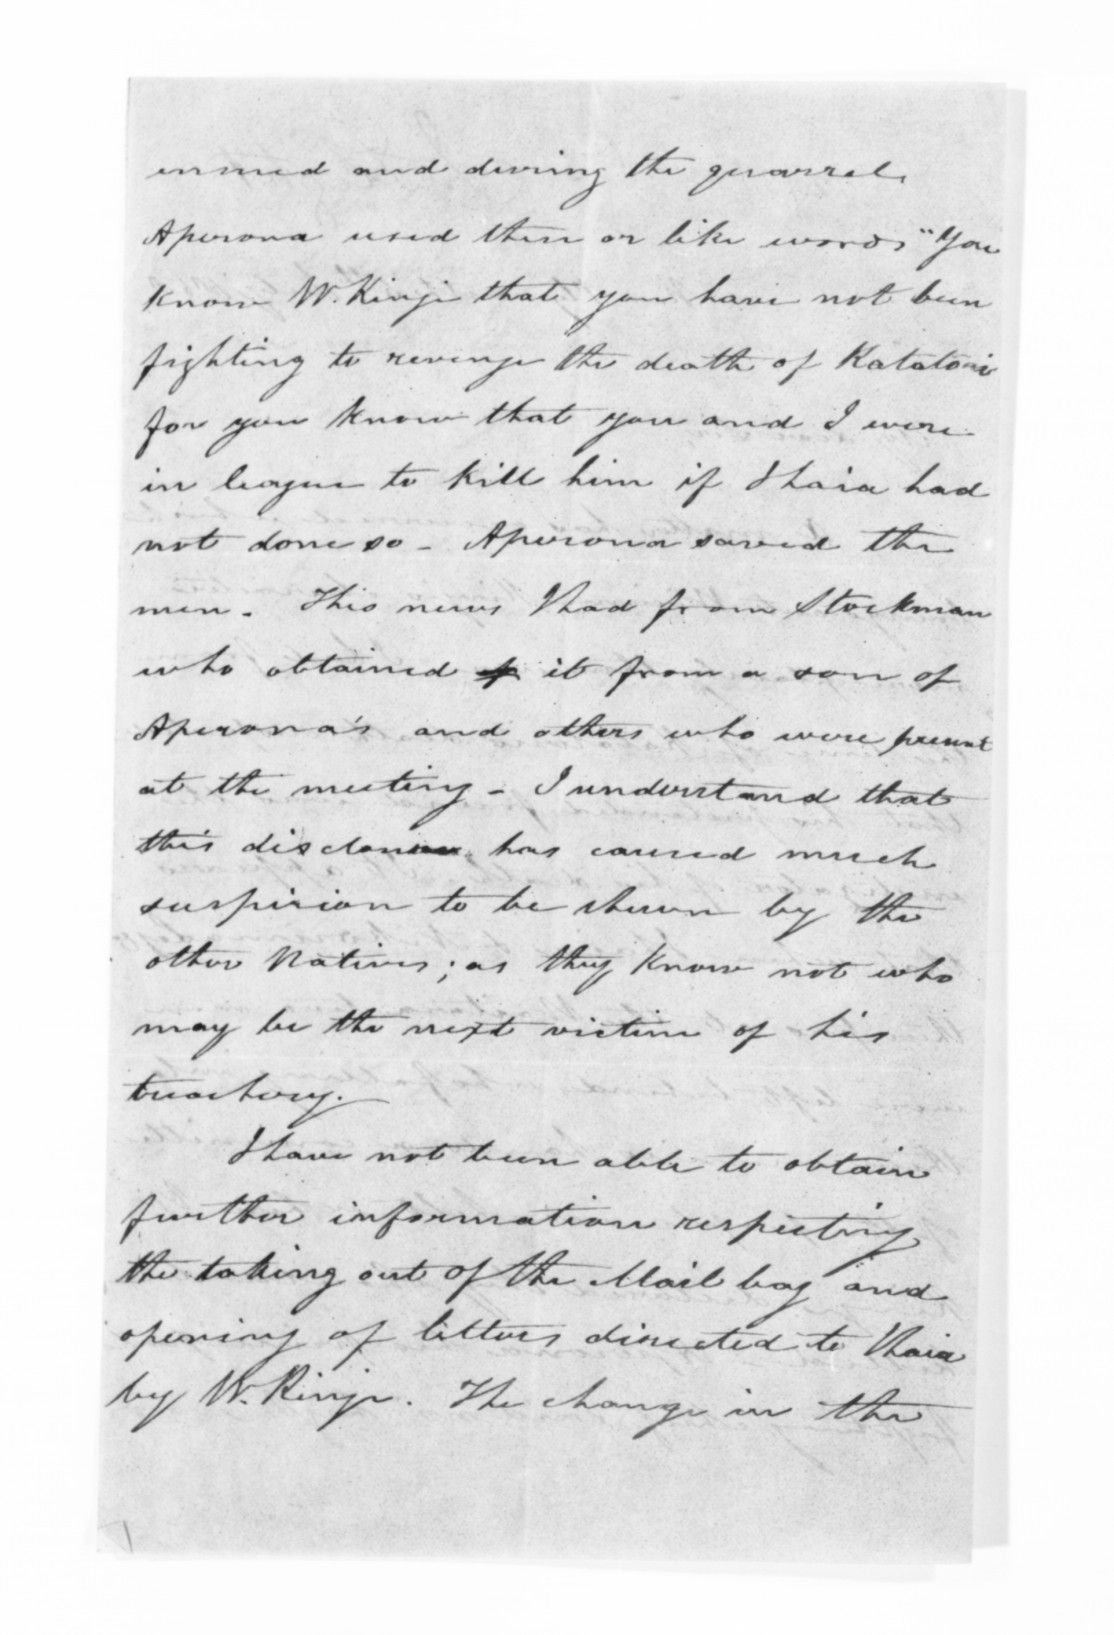 ensued and during the quarrel,
Aperona used these or like words "You
know W. Kinji that you have not been
fighting to revenge the death of Katatori
for you know that you and I were
in league to kill him if Ihaia had
not done so - Aperona saved the
men. This news I had from Stockman
who obtained it from a son of
Aperona's and others who were present
at the meeting - I understand that
this disclosure has caused much
suspicion to be shewn by the
other Natives; as they know not who
may be the next victim of his
treachery.
I have not been able to obtain
further information respecting
the taking out of the Mail bag and
opening of letters directed to Ihaia
by W. Kinji. The change in the